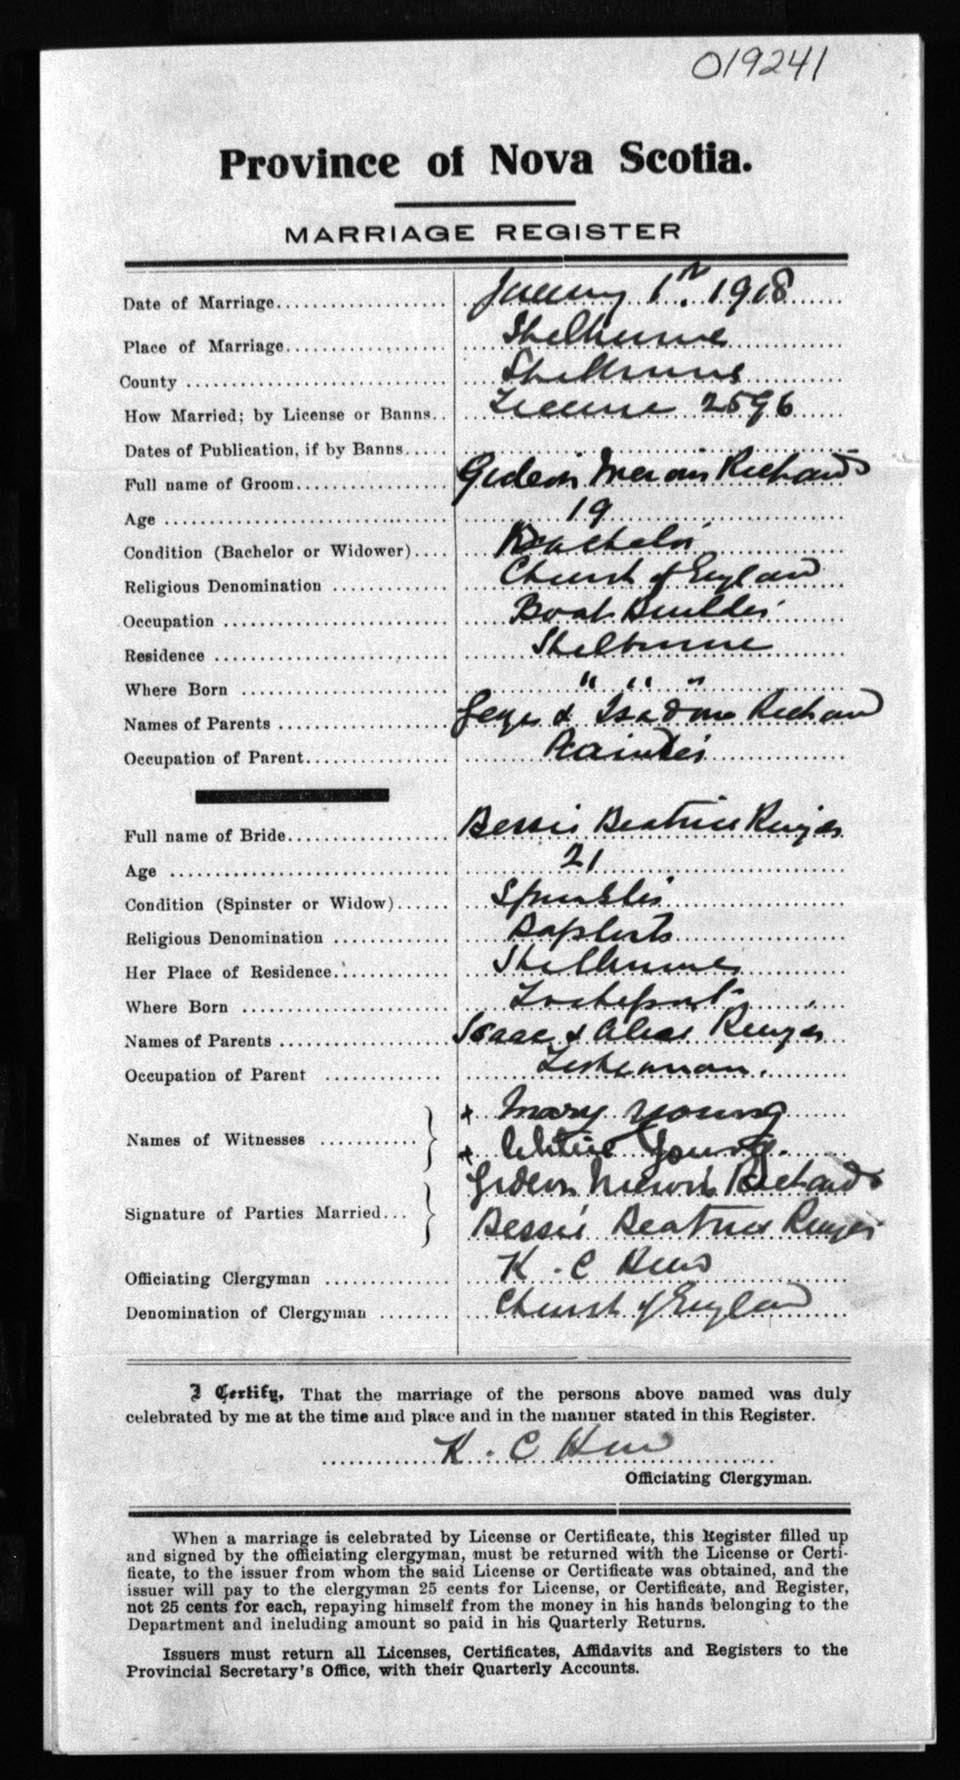 019241
Province of Nova Scotia.
MARRIAGE REGISTER
Date of Marriage January 1st. 1918
Place of Marriage Shelburne
County Shelburne
How Married; by License or Banns License 2596
Dates of Publication, if by Banns
Full name of Groom Gideon Richard
Age 19
Condition (Bachelor or Widower) Bachelor
Religious Denomination Church of England
Occupation Boat Builder
Residence Shelburne
Where Born " " "
Names of Parents & Isadore Richard
Occupation of Parent
Full name of Bride Bessie Beatrice
Age 21
Condition (Spinster or Widow) Spinster
Religious Denomination Baptist
Her Place of Residence Shelburne
Where Born Lockeport
Names of Parents Isaac &
Occupation of Parent Fisherman.
Names of Witnesses + Mary Young
+ Young.
Signature of Parties Married Gideon Richard
Bessie Beatrice
Officiating Clergyman K. C
Denomination of Clergyman Church of England
I Certify, That the marriage of the persons above named was duly
celebrated by me at the time and place and in the manner stated in this Register.
K. C
Officiating Clergyman.
When a marriage is celebrated by License or Certificate, this Register filled up
and signed by the officiating clergyman, must be returned with the License or Certi-
ficate, to the issuer from whom the said License or Certificate was obtained, and the
issuer will pay to the clergyman 25 cents for License, or Certificate, and Register,
not 25 cents for each, repaying himself from the money in his hands belonging to the
Department and including amount so paid in his Quarterly Returns.
Issuers must return all Licenses, Certificates, Affidavits and Registers to the
Provincial Secretary's Office, with their Quarterly Accounts.